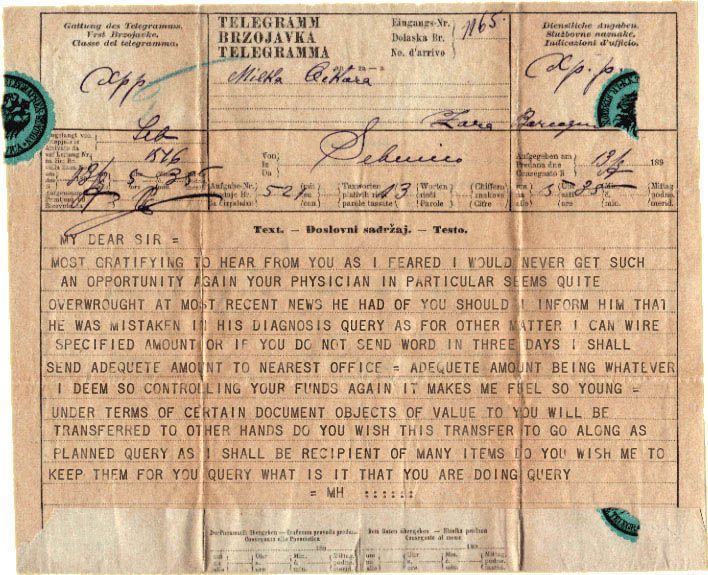 Gattung des Telegramms.
Vrst Brzojavke.
Classe del telegramma.
TELEGRAMM
BRZOJAVKA
TELEGRAMMA
Eingangs-Nr.
Dolaska Br.
No. d'arrivo
1165.
Dienstliche Angaben.
Službovne naznake.
Indicazioni d'ufficio.
Von
Iz
Da
Sebenico
Aufgegeben am
Predana dne
Consegnato il
189
Aufgabe-Nr.
Taxworten
Worten
rieči
Parole
Chiffern
Cifre
Uhr
Min.
Mittag
podne.
merid.
Text. — Doslovni sadržaj. — Testo.
MY DEAR SIR =
MOST GRATIFYING TO HEAR FROM YOU AS I FEARED I WOULD NEVER GET SUCH
AN OPPORTUNITY AGAIN YOUR PHYSICIAN IN PARTICULAR SEEMS QUITE
OVERWROUGHT AT MOST RECENT NEWS HE HAD OF YOU SHOULD I INFORM HIM THAT
HE WAS MISTAKEN IN HIS DIAGNOSIS QUERY AS FOR OTHER MATTER I CAN WIRE
SPECIFIED AMOUNT OR IF YOU DO NOT SEND WORD IN THREE DAYS I SHALL
SEND ADEQUETE AMOUNT TO NEAREST OFFICE = ADEQUETE AMOUNT BEING WHATEVER
I DEEM SO CONTROLLING YOUR FUNDS AGAIN IT MAKES ME FEEL SO YOUNG =
UNDER TERMS OF CERTAIN DOCUMENT OBJECTS OF VALUE TO YOU WILL BE
TRANSFERRED TO OTHER HANDS DO YOU WISH THIS TRANSFER TO GO ALONG AS
PLANNED QUERY AS I SHALL BE RECIPIENT OF MANY ITEMS DO YOU WISH ME TO
KEEP THEM FOR YOU QUERY WHAT IS IT THAT YOU ARE DOING QUERY
= MH ::::::
189
Uhr
Min.
Mittag.
Uhr
Min.
Mittag.